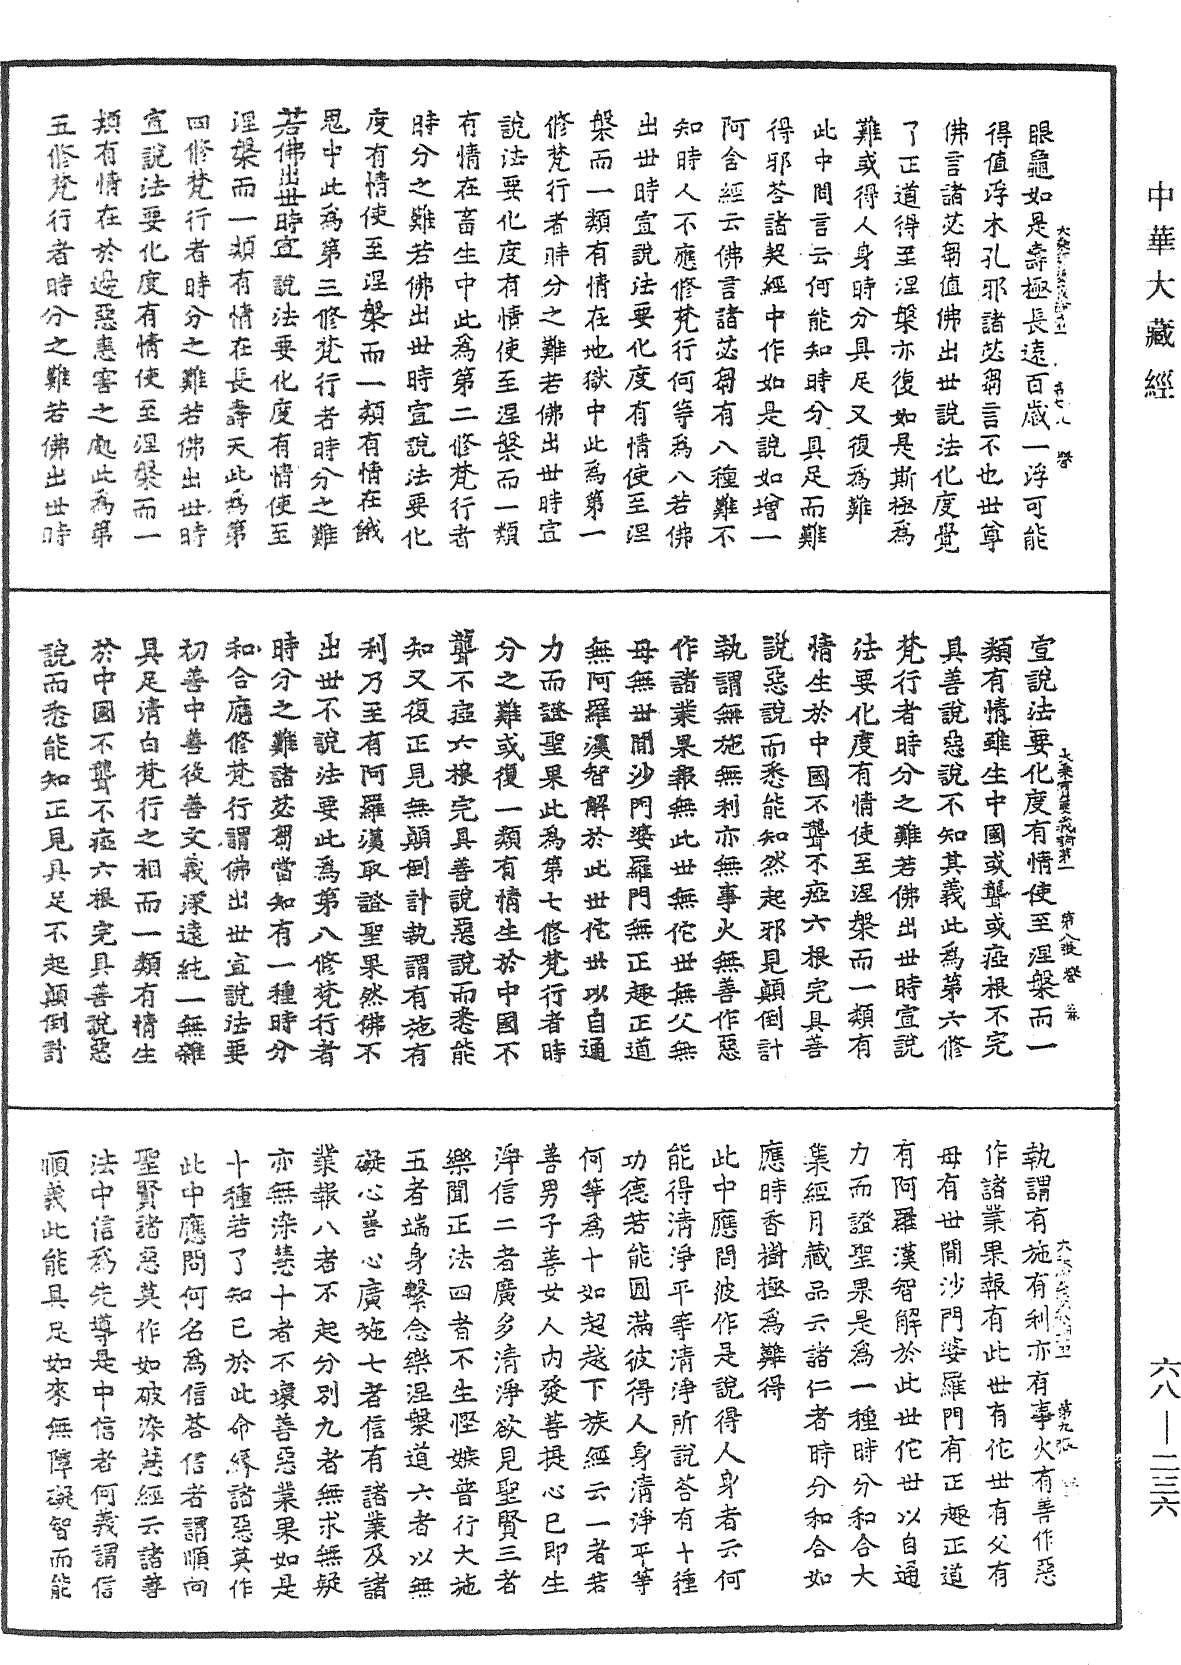 中華大藏經
眼龜如是壽極長遠百歲一浮可能
得值浮木孔邪諸苾芻言不也世尊
佛言諸苾芻值佛出世說法化度覺
了正道得至涅槃亦復如是斯極為
難或得人身時分具足又復為難
此中問言云何能知時分具足而難
得邪答諸契經中作如是說如增一
阿含經云佛言諸苾芻有八種難不
知時人不應修梵行何等為八若佛
出世時宣說法要化度有情使至涅
槃而一類有情在地獄中此為第一
修梵行者時分之難若佛出世時宣
說法要化度有情使至涅槃而一類
有情在畜生中此為第二修梵行者
時分之難若佛出世時宣說法要化
度有情使至涅槃而一類有情在餓
鬼中此為第三修梵行者時分之難
若佛出世時宣說法要化度有情使至
涅槃而一類有情在長壽天此為第
四修梵行者時分之難若佛出世時
宣說法要化度有情使至涅槃而一
類有情在於邊惡患害之處此為第
五修梵行者時分之難若佛出世時
宣說法要化度有情使至涅槃而一
類有情雖生中國或聾或瘂根不完
具善說惡說不知其義此為第六修
梵行者時分之難若佛出世時宣說
法要化度有情使至涅槃而一類有
情生於中國不聾不瘂六根完具善
說惡說而悉能知然起邪見顛倒計
執謂無施無利亦無事火無善作惡
作諸業果報無此世無佗世無父無
母無世間沙門婆羅門無正趣正道
無阿羅漢智解於此世佗世以自通
力而證聖果此為第七修梵行者時
分之難或復一類有情生於中國不
聾不瘂六根完具善說惡說而悉能
知又復正見無顛倒計執謂有施有
利乃至有阿羅漢取證聖果然佛不
出世不說法要此為第八修梵行者
時分之難諸苾芻當知有一種時分
和合應修梵行謂佛出世宣說法要
初善中善後善文義深遠純一無雜
具足清白梵行之相而一類有情生
於中國不聾不瘂六根完具善說惡
說而悉能知正見具足不起顛倒計
大乘寶要義論第一 第八張 發
執謂有施有利亦有事火有善作惡
作諸業果報有此世有佗世有父有
母有世間沙門婆羅門有正趣正道
有阿羅漢智解於此世佗世以自通
力而證聖果是為一種時分和合大
集經月藏品云諸仁者時分和合如
應時香樹極為難得
此中應問彼作是說得人身者云何
能得清淨平等清淨所說答有十種
功德若能圓滿彼得人身清淨平等
何等為十如起越下族經云一者若
善男子善女人內發菩提心已即生
淨信二者廣多清淨欲見聖賢三者
樂聞正法四者不生慳嫉普行大施
五者端身繫念樂涅槃道六者以無
礙心善心廣施七者信有諸業及諸
業報八者不起分別九者無求無疑
亦無染慧十者不壞善惡業果如是
十種若了知已於此命緣諸惡莫作
此中應問何名為信答信者謂順向
聖賢諸惡莫作如破染慧經云諸善
法中信為先導是中信者何義謂信
順義此能具足如來無障礙智而能
六八—二三六